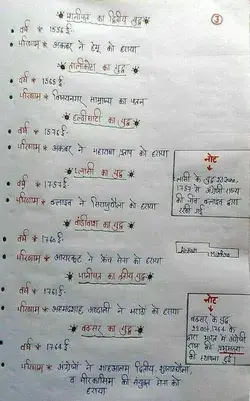 पानीपत का द्वितीय युद्ध
3
वर्ष * 1556 ई·
परिणाम * अकबर ने हेमू को हराया
तालीकोटा का युद्ध
वर्ष * 1565 ई·
परिणाम * विजयनगर साम्राज्य का पतन
हल्दीघाटी का युद्ध
वर्ष * 1576 ई·
परिणाम * अकबर ने महाराणा प्रताप को हराया
प्लासी का युद्ध
वर्ष * 1757 ई·
परिणाम * क्लाइव ने सिराजुद्दौला को हराया
नोट
प्लासी के युद्ध 23 June,
1757 से अंग्रेजी राज्य
की नींव क्लाइव द्वारा
रखी गई
वांडिवाश का युद्ध
वर्ष * 1760 ई·
परिणाम * आयरकूट ने फ्रेंच सेना को हराया
पानीपत का तृतीय युद्ध
वर्ष * 1761 ई·
परिणाम * अहमदशाह अब्दाली ने मराठों को हराया
बक्सर का युद्ध
वर्ष * 1764 ई·
परिणाम * अंग्रेजों ने शाहआलम द्वितीय, शुजाउद्दौला,
व मीरकासिम की संयुक्त सेना को
हराया
नोट
बक्सर के युद्ध
22 Oct, 1764 के
द्वारा भारत में अंग्रेजी
राज्य की
स्थापना हुई।